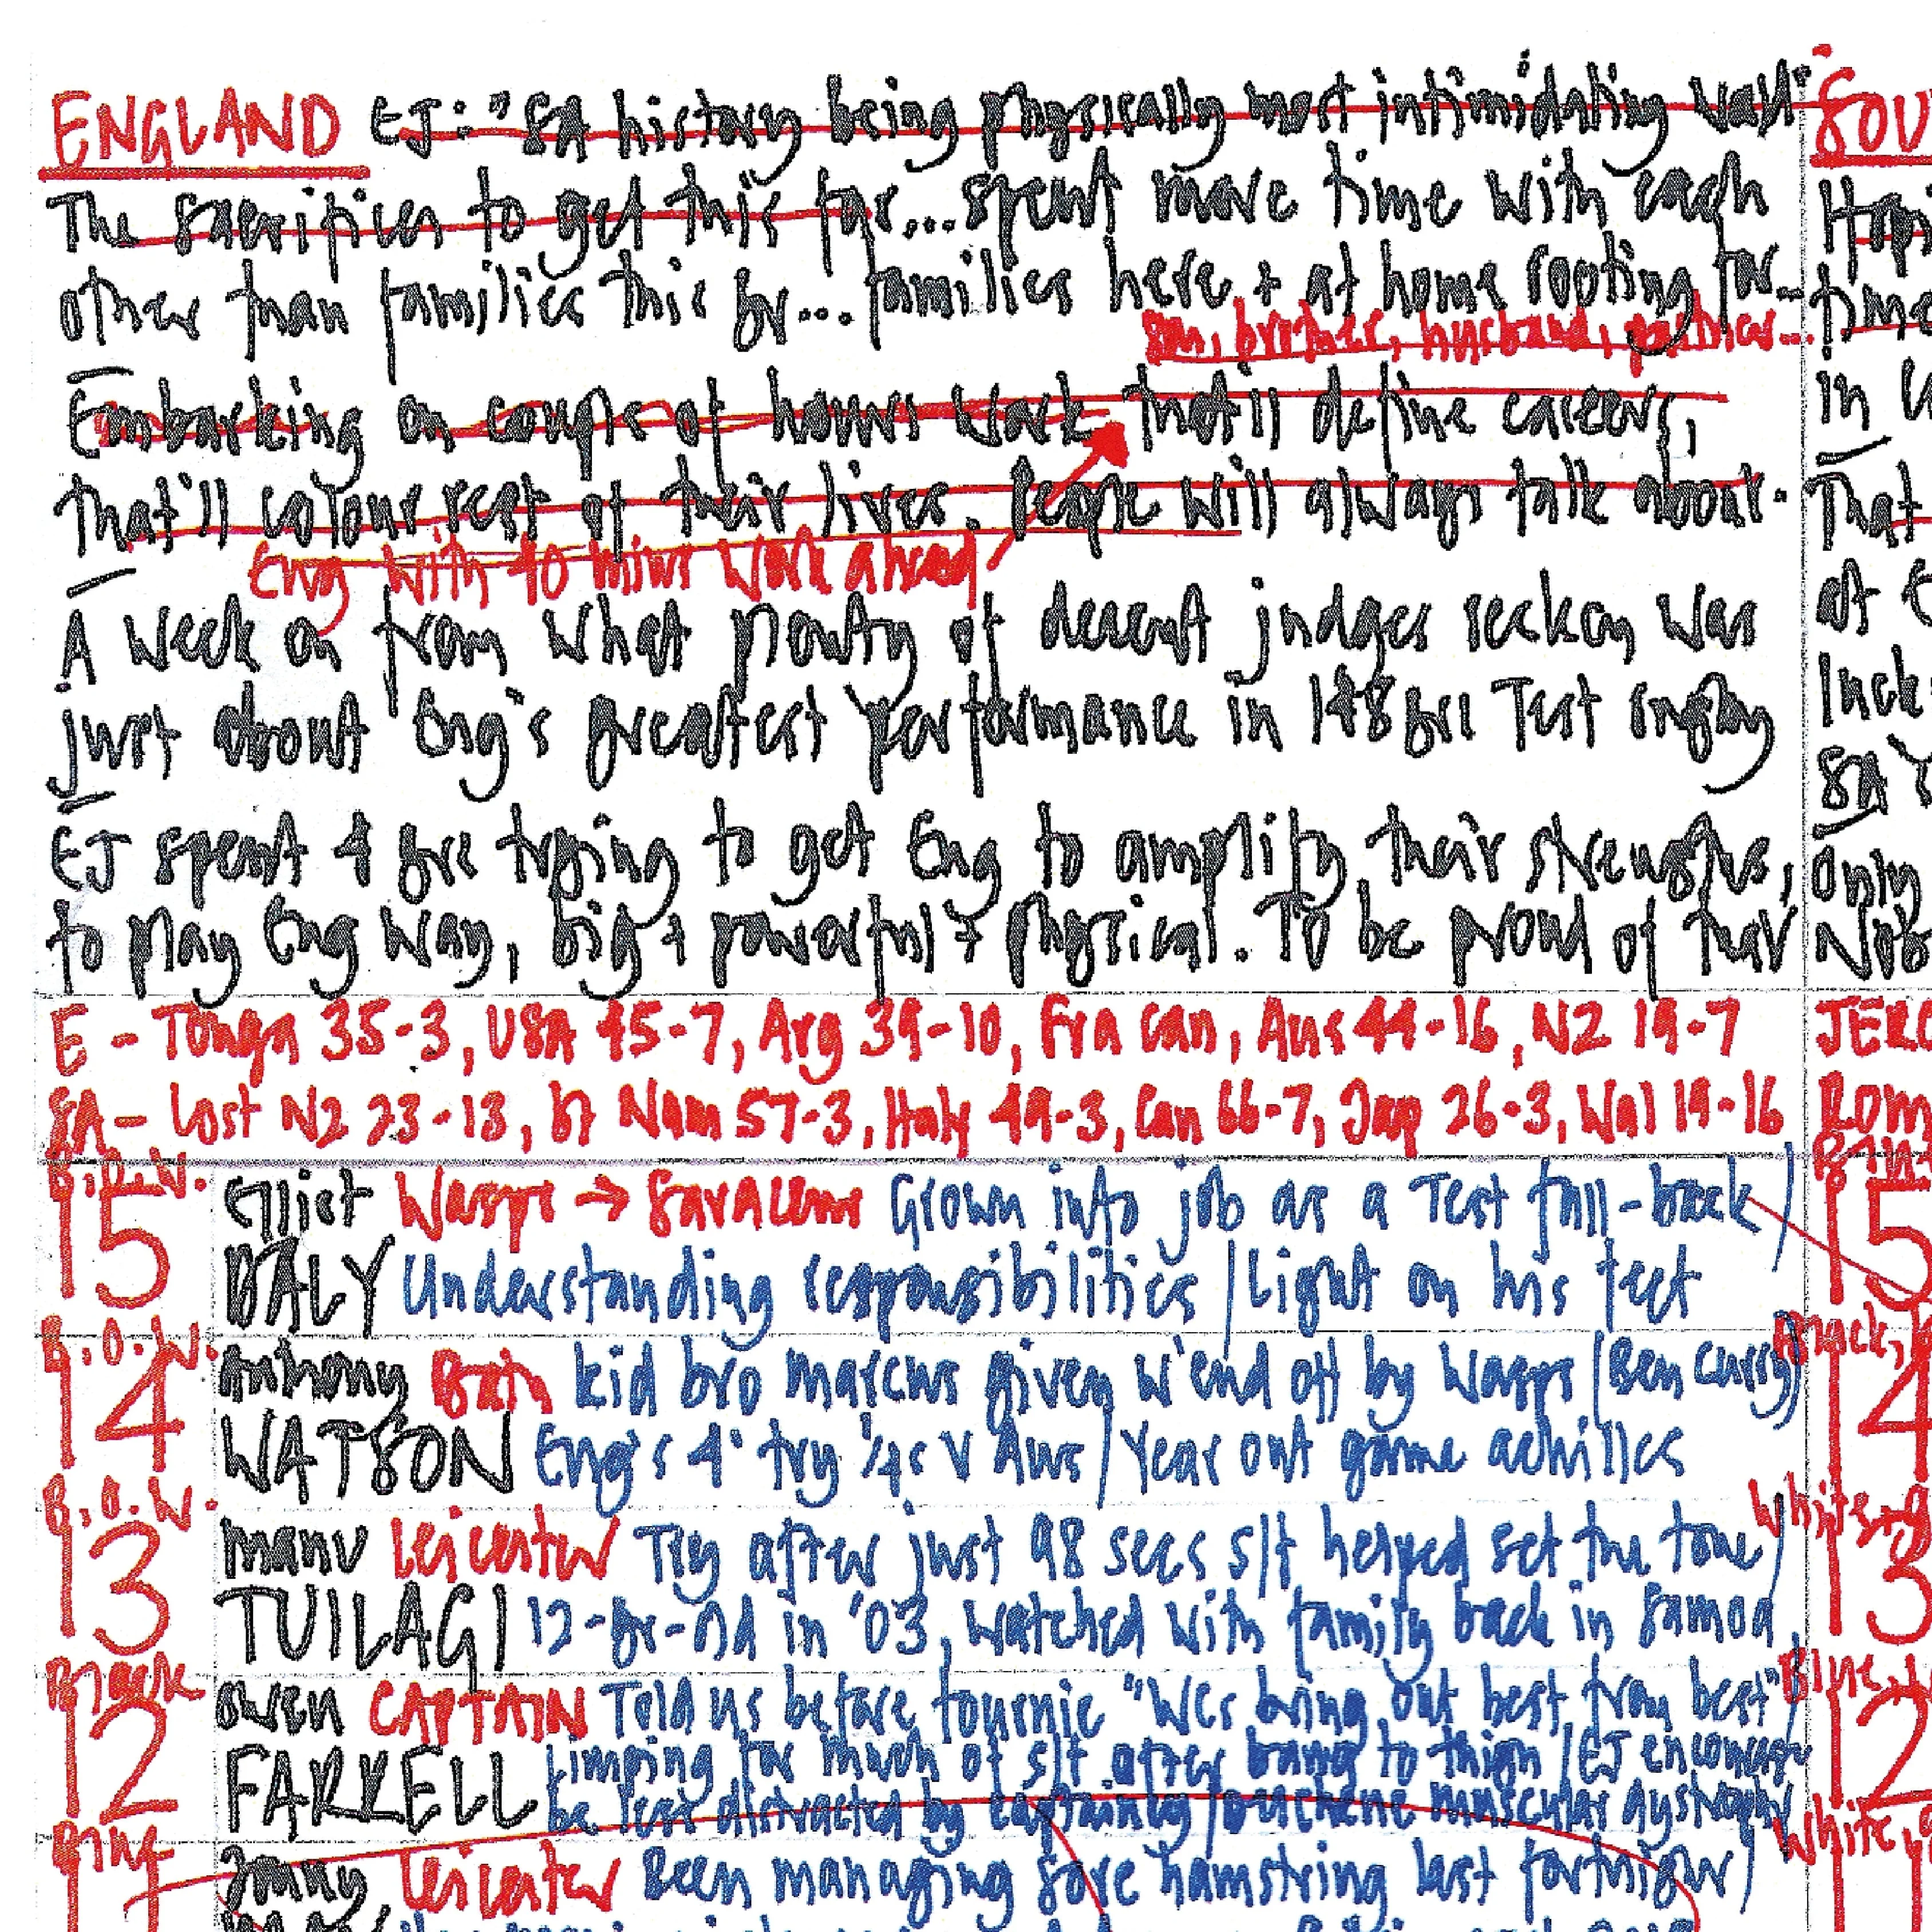 ENGLAND EJ: "SA history being physically most intimidating
The sacrifices to get this far...spent more time with each
other than families this yr... families here + at home rooting for...
son, brother, husband, partner...
Embarking on couple of hours work that'll define careers,
that'll colour rest of their lives. People will always talk about.
Eng with 40 mins work ahead
A week on from what plenty of decent judges reckon was
just about Eng's greatest performance in 148 yrs Test rugby
EJ spent 4 yrs trying to get Eng to amplify their strengths,
to play Eng way, big + powerful + physical. To be proud of their
E - Tonga 35-3, USA 45-7, Arg 39-10, Fra can, Aus 44-16, NZ 19-7
SA - Lost NZ 23-13, bt Nam 57-3, Italy 49-3, Can 66-7, Jap 26-3, Wal 19-16
15 Elliot Wasps → Saracens Grown into job as a Test full-back/
DALY Understanding responsibilities / Light on his feet
B.O.W.
14 Anthony Bath kid bro Marcus given w'end off by Wasps (Ben Curry)
WATSON Eng's 4 try v Aus / Year out game achilles
B.O.W.
13 Manu Leicester Try after just 98 secs s/f helped set the tone/
TUILAGI 12-yr-old in '03, watched with family back in Samoa
Black
12 Owen CAPTAIN Told us before tournie "Wes bring out best from best"/
FARRELL Limping for much of s/f after bang to thigh / EJ encourage
be less distracted by captaincy / Duchenne muscular dystrophy
Jonny Leicester Been managing sore hamstring last fortnight/
SOU
in
That
at
luck
SA
only
JER
15
14
13
Blue
12
White